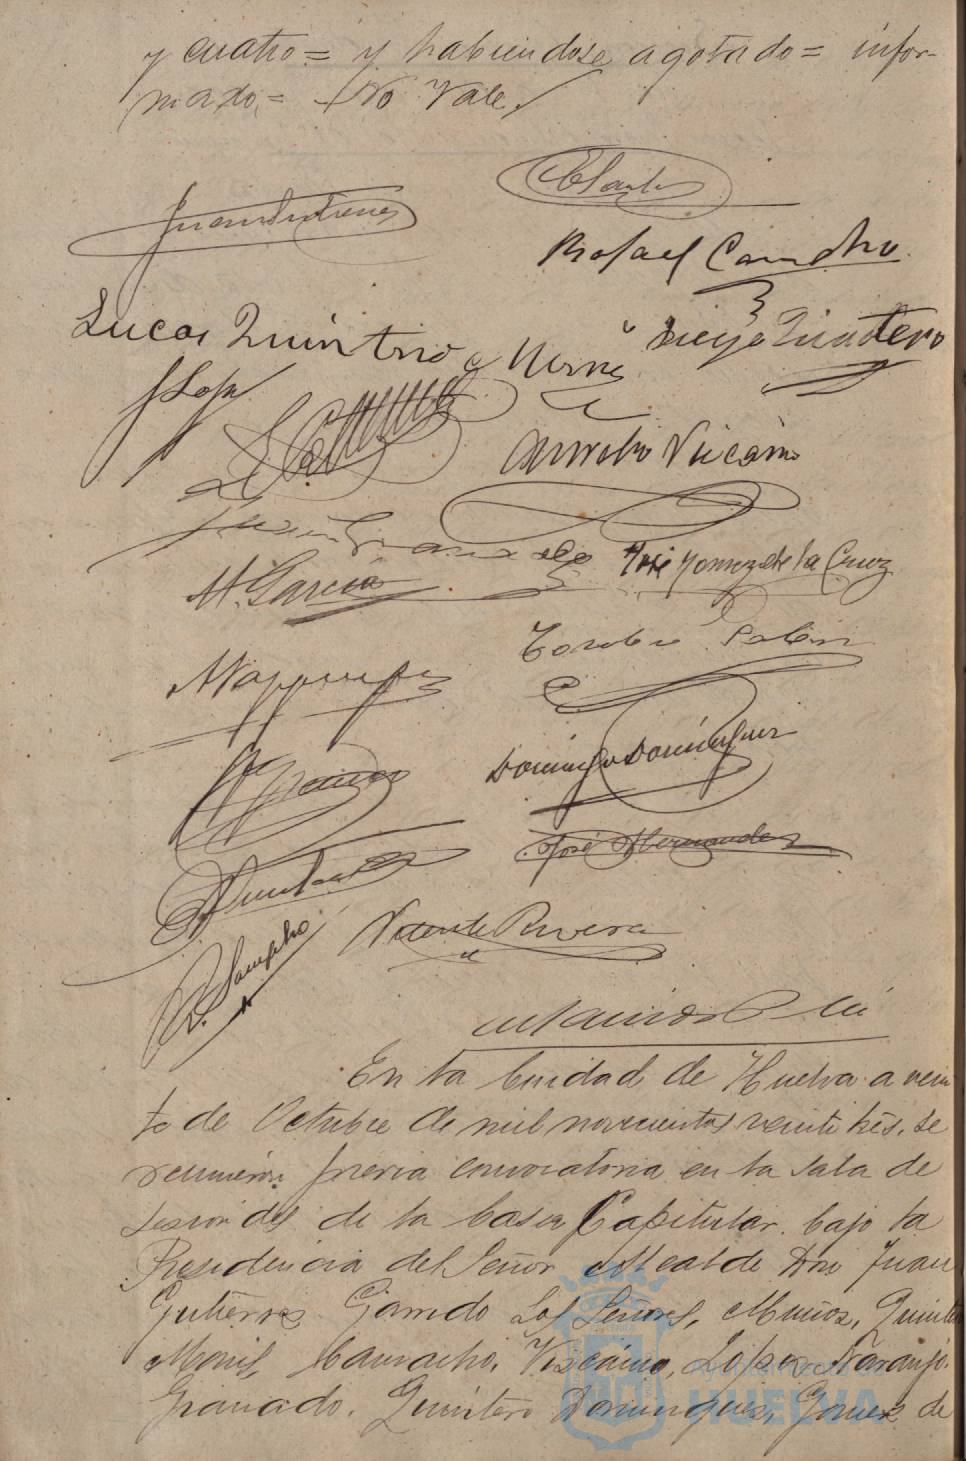 y cuatro = y habiendose agotado = infor-
mado = No Vale
Juan Gutierrez
Rafael Camacho
Lucas Quintero
Diego Quintero
J Lopez
Aurelio Viscaino
José Gomez de la Cruz
M. García
Domingo Dominguez
José Hernandez
Vicente Rivera
En la Ciudad de Huelva a vein
te de Octubre de mil novecientos veinte tres, se
reunieron previa convocatoria en la Sala de
Sesiones de la Casa Capitular bajo la
Presidencia del Señor Alcalde Don Juan
Gutierres Garrido Los Señores, Muños, Quintero
Monis, Camacho, Viscaino, Lopez Naranjo,
Granado, Quintero Domingues, Gomez de
Ayuntamiento de
HUELVA